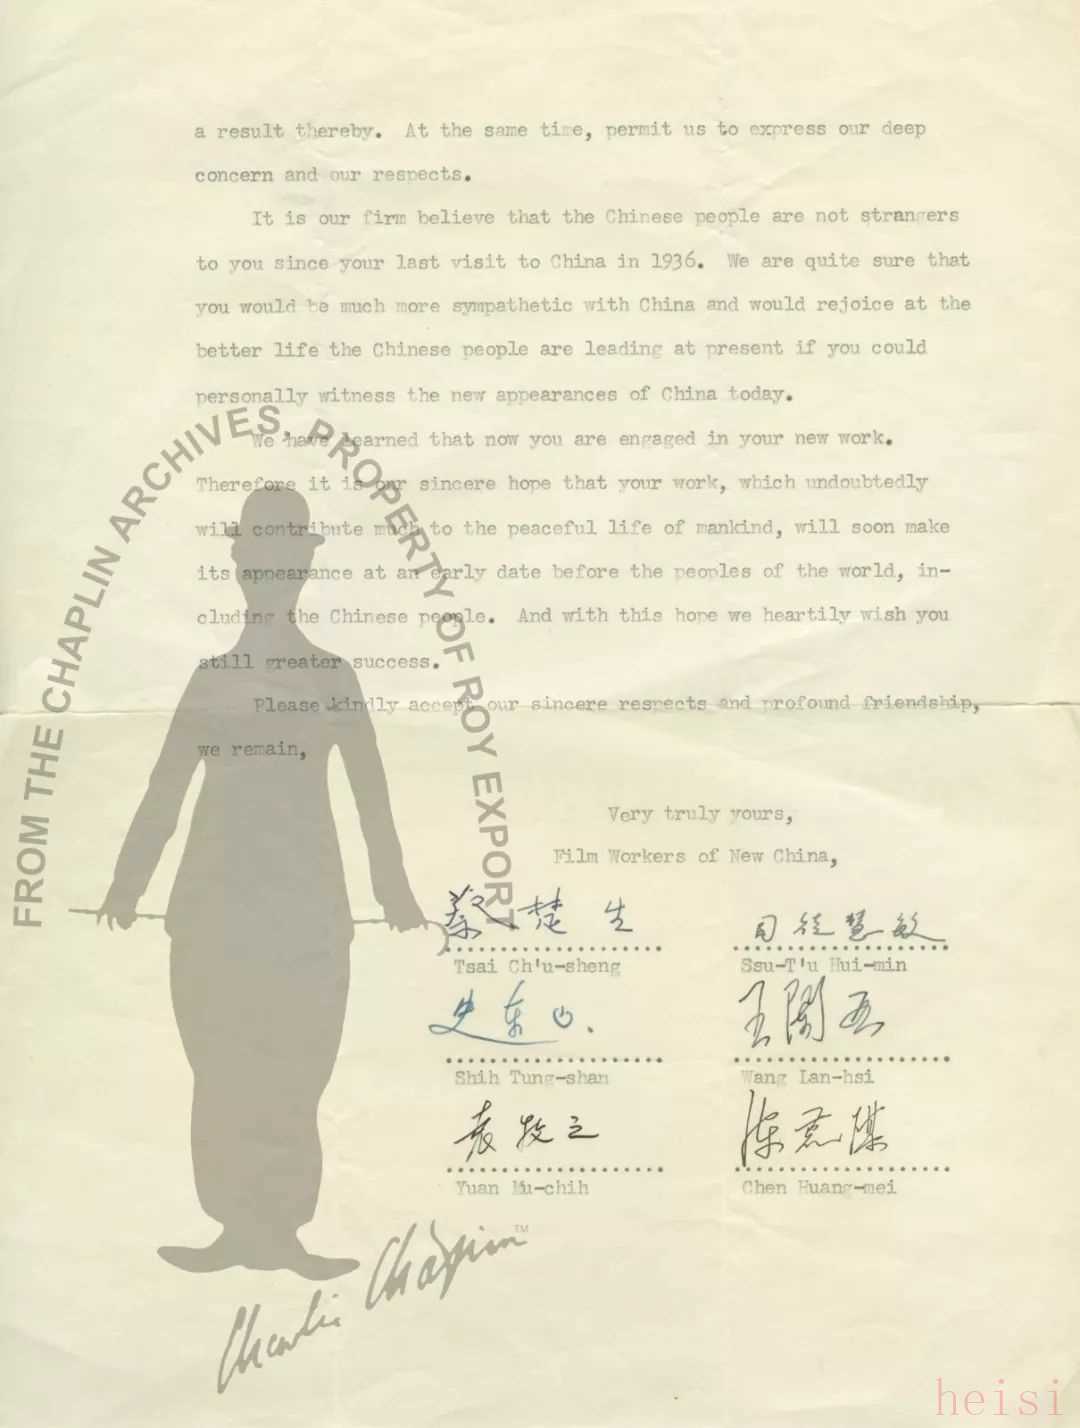 a result thereby. At the same time, permit us to express our deep
concern and our respects.
It is our firm believe that the Chinese people are not strangers
to you since your last visit to China in 1936. We are quite sure that
you would be much more sympathetic with China and would rejoice at the
better life the Chinese people are leading at present if you could
personally witness the new appearances of China today.
We have learned that now you are engaged in your new work.
Therefore it is our sincere hope that your work, which undoubtedly
will contribute much to the peaceful life of mankind, will soon make
its appearance at an early date before the peoples of the world, in-
cluding the Chinese people. And with this hope we heartily wish you
still greater success.
Please kindly accept our sincere respects and profound friendship,
we remain,
Very truly yours,
Film Workers of New China,
蔡楚生 司徒慧敏
Tsai Ch'u-sheng Ssu-T'u Hui-min
史东山. 王阑西
Shih Tung-shan Wang Lan-hsi
袁牧之 陈荒煤
Yuan Mu-chih Chen Huang-mei
FROM THE CHAPLIN ARCHIVES, PROPERTY OF ROY EXPORT
Charlie Chaplin™
heisi